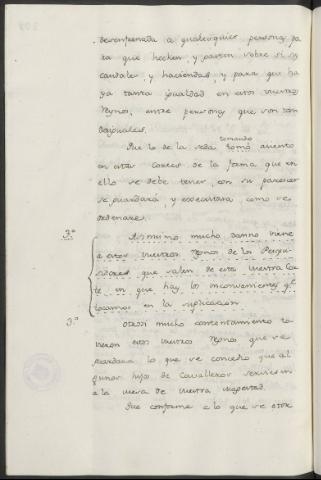 desenpeñada a qualesquier personas pa
ra que hechen, y pasen sobre si sus
caudales, y haciendas, y para que ha
ya tanta igualdad en estos vuestros
reynos, entre personas que son tan
desiguales.
Que lo de la seda tomando
tomó asiento
en estas cortes de la forma que en
ello se debe tener, con su parecer
se guardará, y executara como se
ordenare.
3.ª
Asimismo mucho danno viene
a estos vuestros reynos de los
que salen de esta vuestra Cor
te en que hay los inconvenientes q.e
tocamos en la suplicacion
3.ª
Otrosi mucho contentamiento tu
vieron estos vuestros reynos que se
guardara lo que se concedio que al
gunos hijos de Cavalleros serviesen
a la mesa de vuestra magestad.
Que conforme a lo que se otor